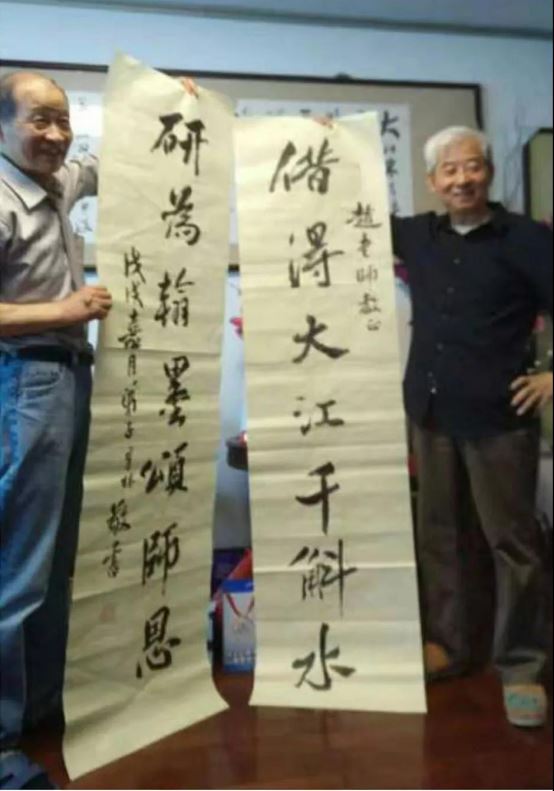 趙老師教正
借得大江千斛水
研為翰墨頌師恩
戊戌嘉月弟子敬書